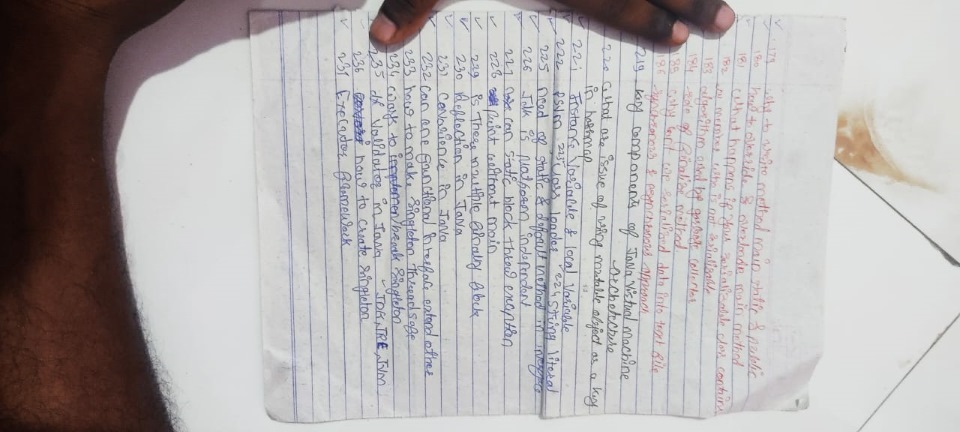 179 why to write method main static & public
180 how to override & overloadn main method
181 what happens if your serializable class contains
182 a member who is not serializable
183 algorithm used by garbage collector
184 role of finalize method
185 why can't we serialized data into text file
186 synchronous & asynchronous approach
219 Key components of JAVA Virtual machine
archetecture
220 what are issue of using mutable object as a key
in hashmap
221 Instance Variable & local Variable
222 PSVM 223 class loader 224 string literal
225 need of static & default method in interface
226 Jdk is platform independent
227 can static block throw exception
228 print without main
229 is There multiple finally block
230 Reflection in Java
231 in Java
232 can one functional interface extend other
233 how to make singleton threadsafe
234 ways to break singleton
235 Validator in Java JDK, JRE, JVM
236 how to create singleton
237 Executor framework